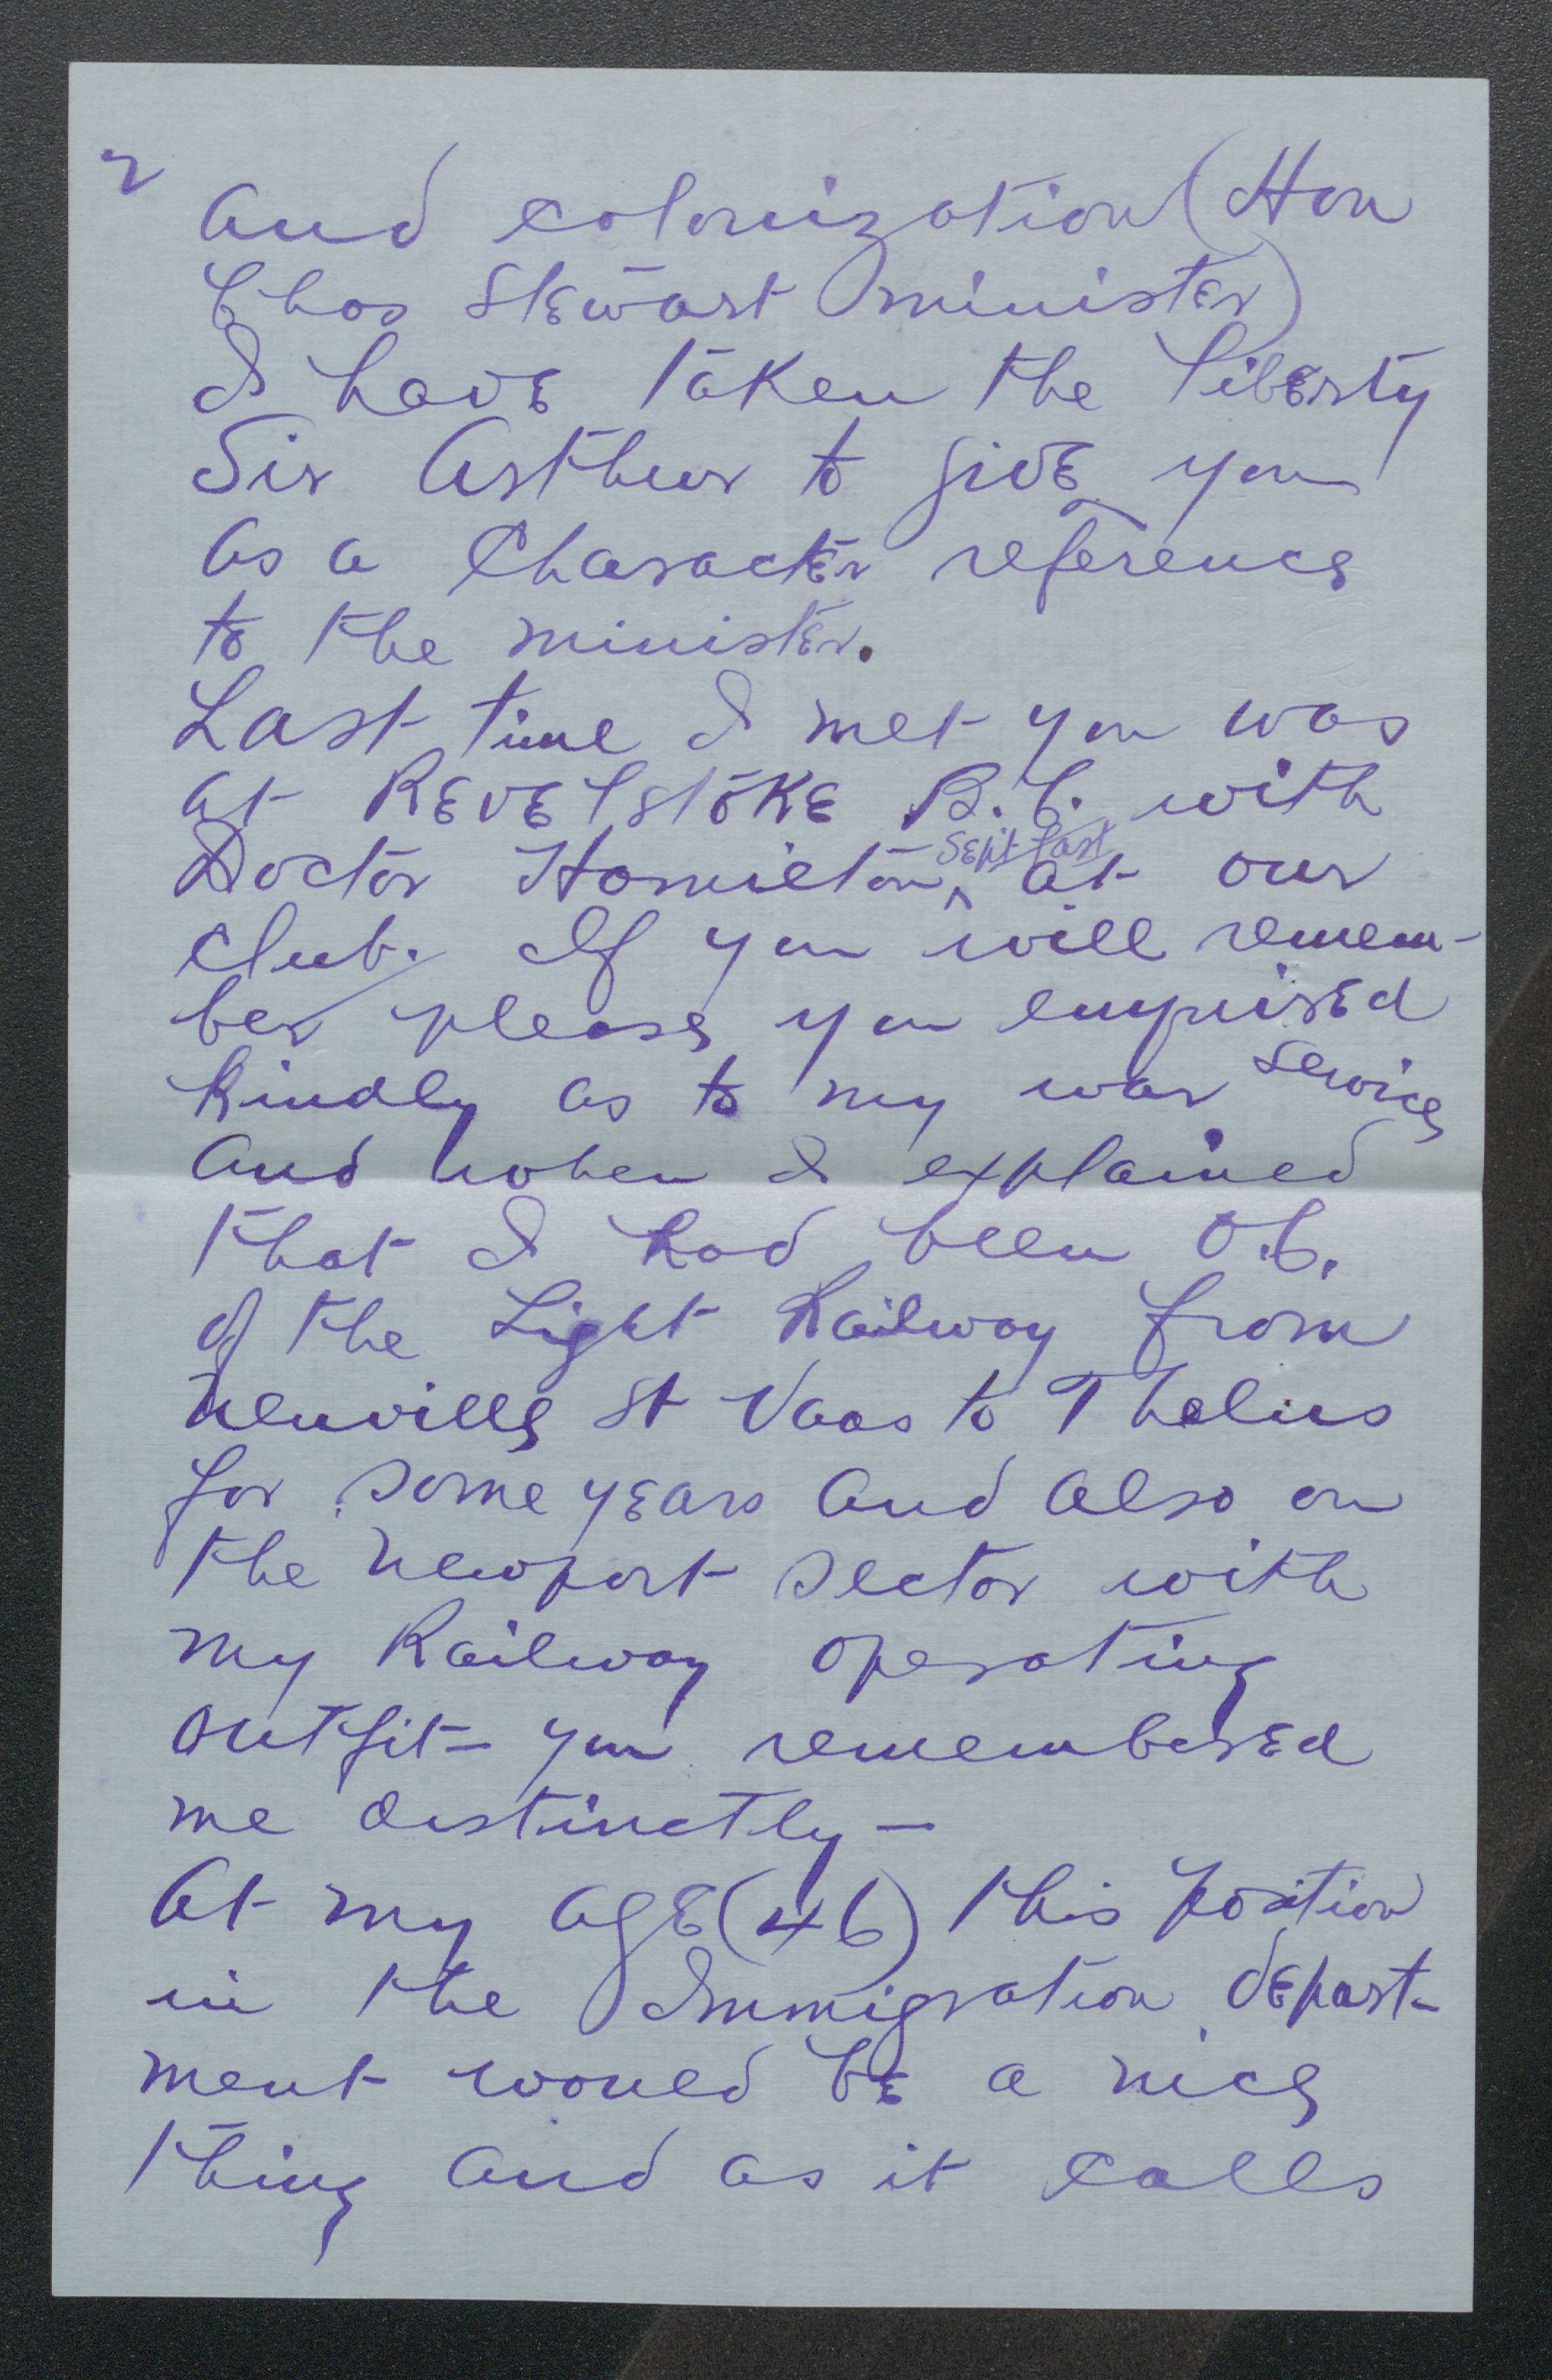 2
and colonization (Hon
Chas Stewart minister)
I have taken the liberty
Sir Arthur to give you
as a Character reference
to the minister.
Last time I met you was
at Revelstoke B.C. with
Doctor Hamilton ^ Sept last at our
Club. If you will remem-
ber please you enquired
kindly as to my war service
and when I explained
that I had been O.C.
of the Light Railway from
Neuville St Vaas to Thelus
for some years and also on
the Newport sector with
my Railway operating
outfit - you remembered
me distinctly -
At my age (46) this position
in the Immigration depart-
ment would be a nice
thing and as it calls